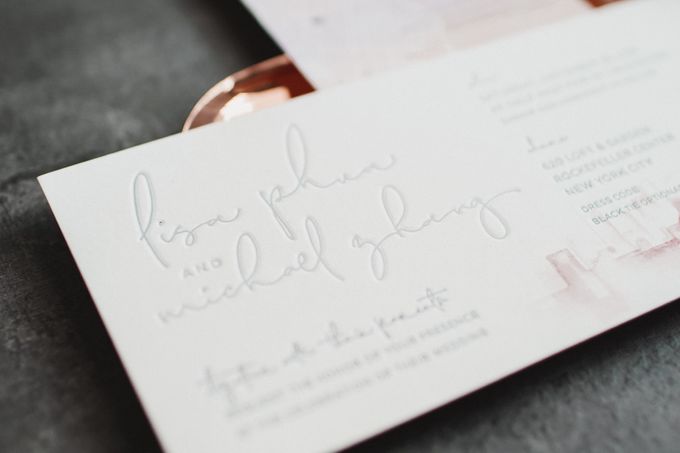 lisa phan
AND
michael zhang
together with their parents
REQUEST THE HONOR OF YOUR PRESENCE
AT THE CELEBRATION OF THEIR WEDDING
620 LOFT & GARDEN
ROCKEFELLER CENTER
NEW YORK CITY
DRESS CODE:
BLACK TIE OPTIONAL